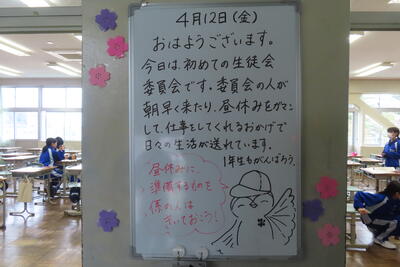 4月12日(金)
おはようございます。
今日は、初めての生徒会
委員会です。委員会の人が
朝早く来たり、昼休みをがまん
して、仕事をしてくれるおかげで
日々の生活が送れています。
1年生もがんばろう。
昼休みに、
準備するものを
係の人は
きいておこう!